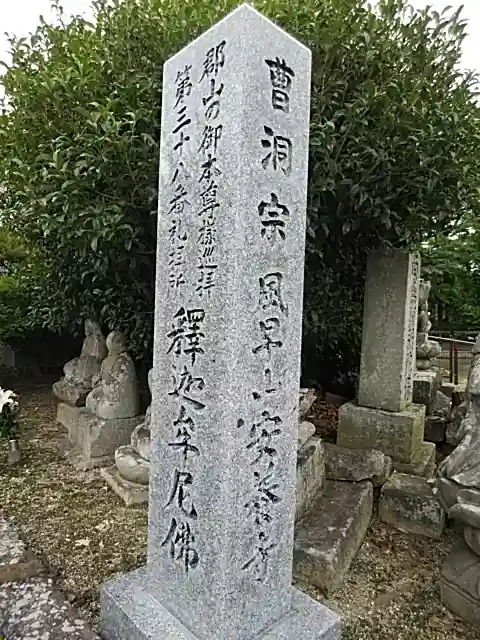 曹洞宗 風早山 安養寺
郡山の御本尊様巡拝
第二十八番札所
釋迦牟尼佛